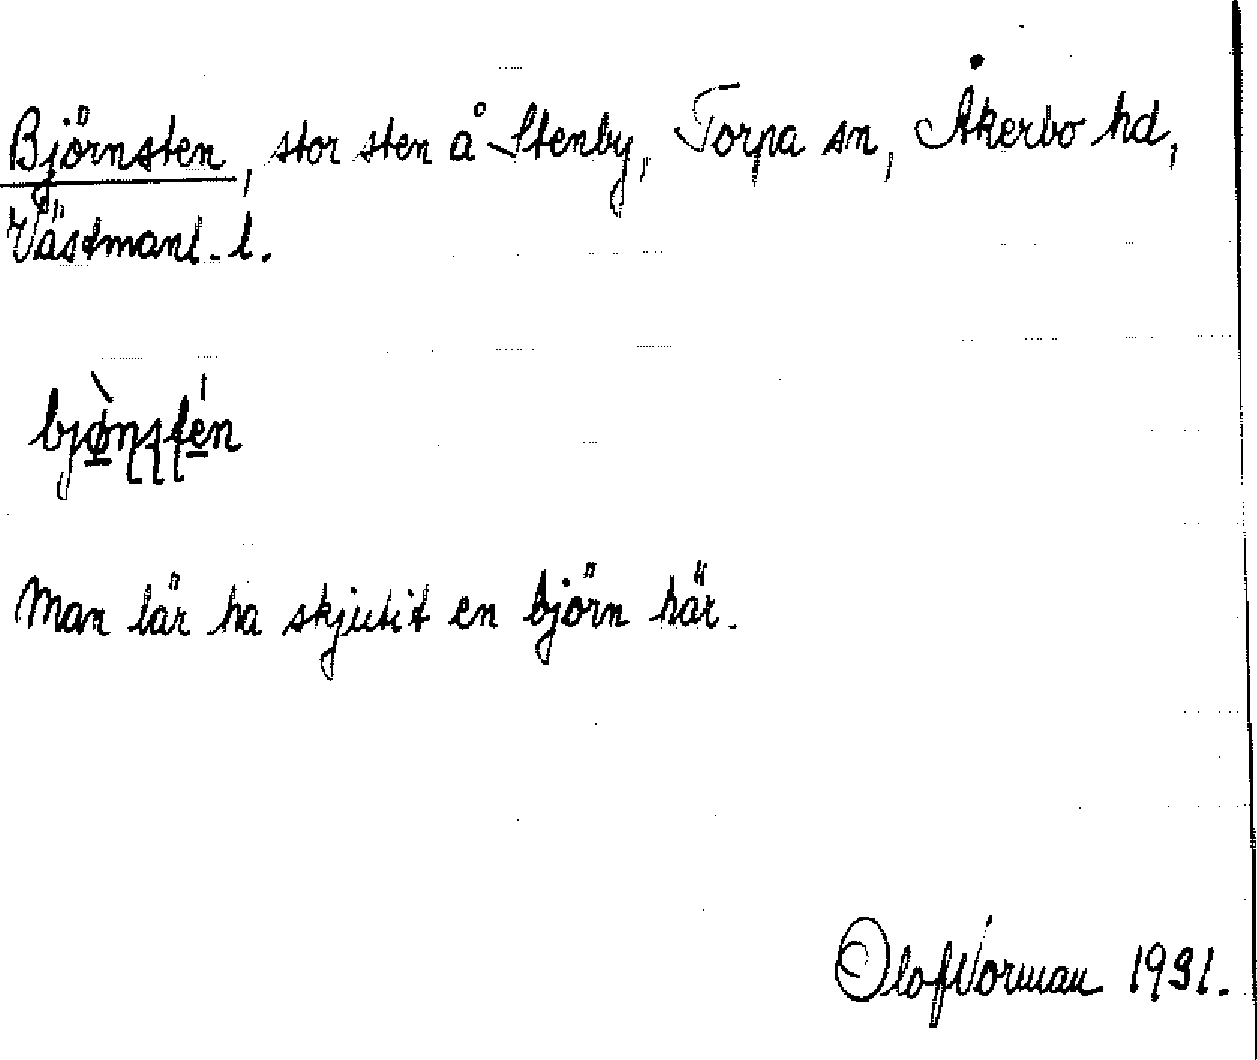 Björnsten, stor sten å Stenby, Torpa sn, Åkerbo hd,
Västmanl. l.
Man lär ha skjutit en björn här.
Olof Norman 1931.